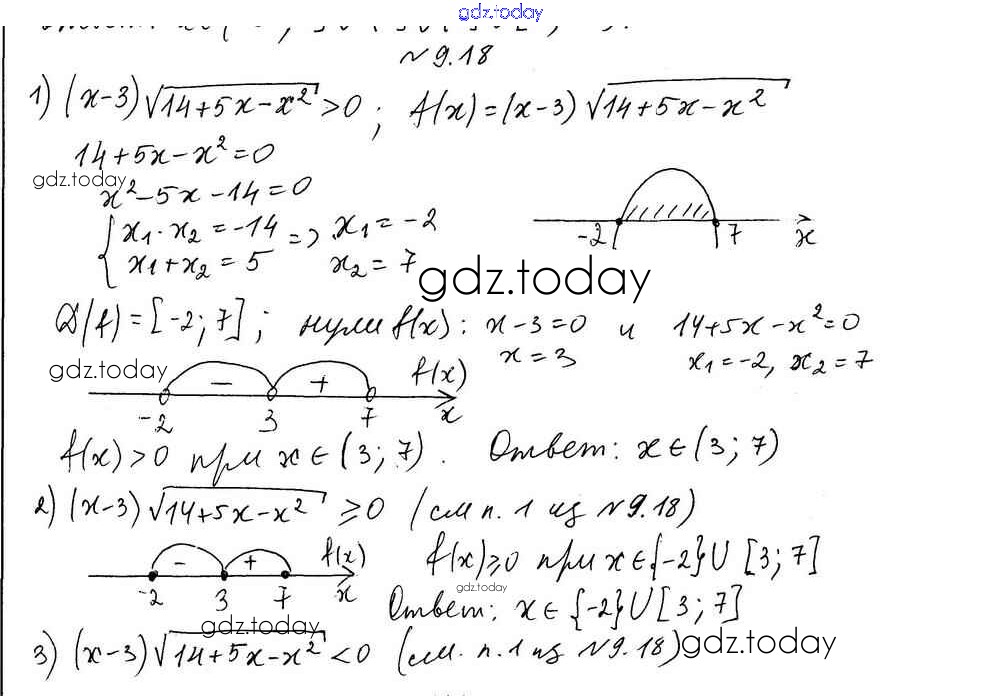 gdz.today
№ 9.18
1) (x-3)√(14+5x-x²) > 0 ; f(x) = (x-3)√(14+5x-x²)
14+5x-x²=0
gdz.today
x²-5x-14=0
{ x₁·x₂ = -14 => x₁ = -2
x₁+x₂ = 5 x₂ = 7
-2 7 x
gdz.today
D(f) = [-2; 7] ; нули f(x) : x-3=0 и 14+5x-x²=0
x = 3 x₁=-2, x₂=7
gdz.today
- + f(x)
-2 3 7 x
f(x)>0 при x∈(3; 7). Ответ: x∈(3; 7)
2) (x-3)√(14+5x-x²) ≥ 0 (см п. 1 из №9.18)
- + f(x)
-2 3 7 x
f(x)≥0 при x∈{-2}∪[3; 7]
gdz.today
Ответ: x∈{-2}∪[3; 7]
gdz.today
3) (x-3)√(14+5x-x²) < 0 (см. п. 1 из №9.18)
gdz.today